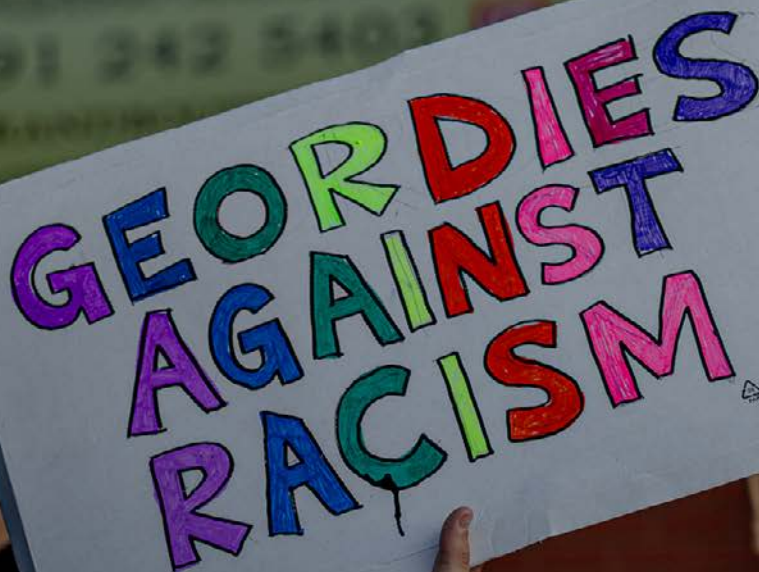 GEORDIES
AGAINST
RACISM